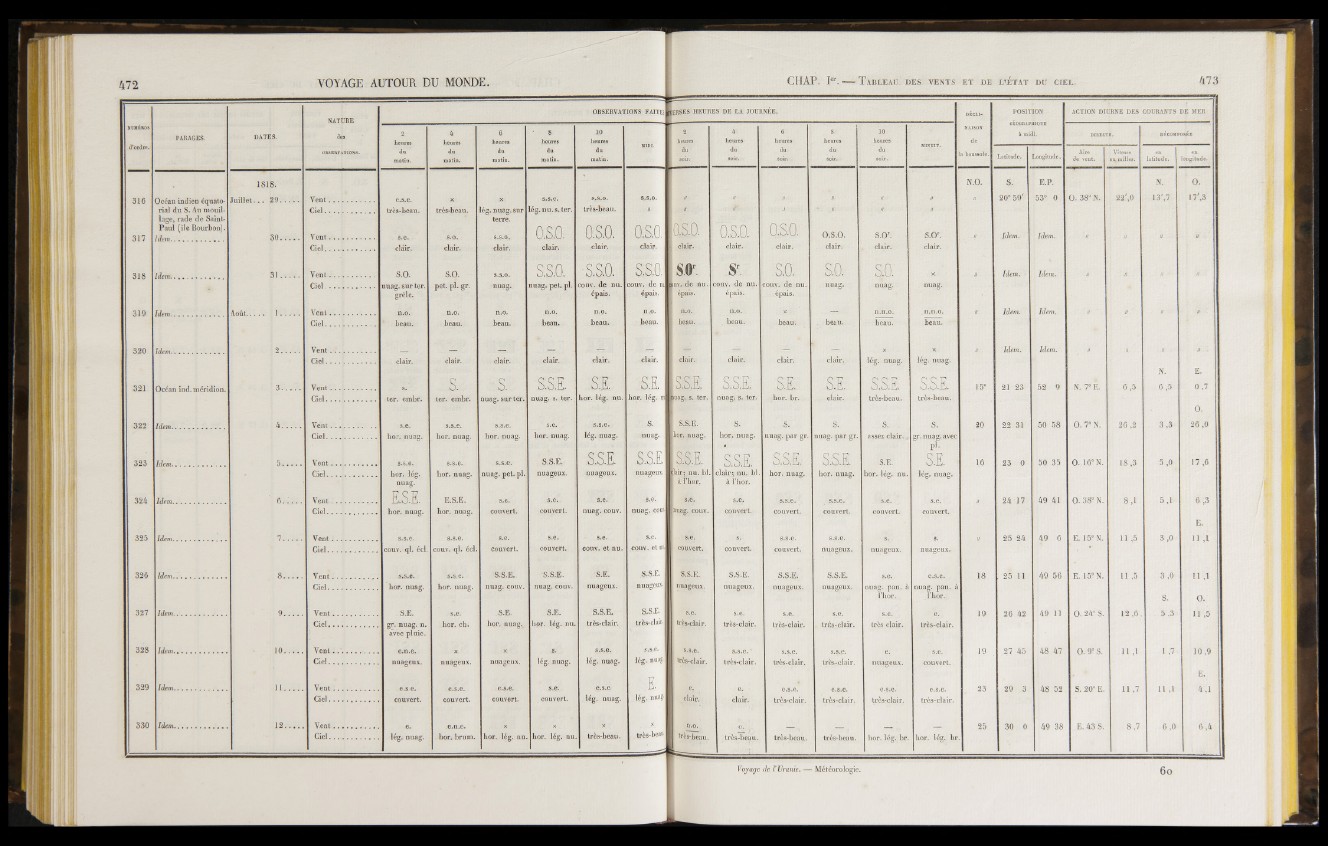 472
VOYAGE AUTOUR DU MONDE.
CHAP. Ier. — TABLEAU DES VENTS ET DE L'ÉTAT DU CIEL.
473
NUMÉROS d'ordre.
PARAGES.
DATES.
NATURE des OBSERVATIONS.
OBSERVATIONS FAITES
HEURES DE LA JOURNÉE.
2 heures du matin.
4 heures du matin.
6 heures du matin.
8 heures du matin.
10 heures du matin.
MIDI.
2 heures du soir.
4 heures du soir.
6 heures du soir.
8 heures du soir.
10 heures du soir.
MINUIT.
DÉCLINAISON de la boussole.
POSITION GÉOGRAPHIQUE à midi.
Latitude.
Longitude.
ACTION DIURNE DES COURANTS DE MER
DIRECTE.
DÉCOMPOSÉE
Aire de vent.
Vitesse en milles.
en latitude.
en longitude.
1818.
N.O. S. E.P. N. O.
316 Océan indien équato- Juillet... 29..... Vent e.s.e. x x s.s.e. s.s.o. s.s.o. 20° 50' 53° 0 O. 38° N. 22',0 13',7 17',3
rial du S. Au mouil- Ciel très-beau. très-beau. lég. nuag. sur lég. nu. s. ter. très-beau.
lage, rade de Saint- terre.
Paul (île Bourbon).
317 Idem. 30..... Vent s.o. s.o. s.s.o. O.S.O. O.S.O. O.S.O. O.S.O. O.S.O. O.S.O. O.S.O. S.Or. S.Or. Idem. Idem.
Ciel clair. clair. clair. clair. clair. clair. clair. clair. clair. clair. clair. clair.
318 Idem. 31..... Vent S.O. S.O. s.s.o. S.S.O. S.S.O. S.S.O. S.Or. Sr. S.O. S.O. S.O. x Idem. Idem.
Ciel nuag. sur ter. pet. pl. gr. nuag. nuag. pet. pl. couv. de nu. couv. de n. couv. de nu. couv. de nu. couv. de nu. nuag. nuag. nuag.
grêle. épais. épais. épais. épais. épais.
319 Idem. Août.... 1..... Vent n.o. n.o. n.o. n.o. n.o. n.o. n.o. n.o. x — n.n.o. n.n.o. Idem. Idem.
Ciel beau. beau. beau. beau. beau. beau. beau. beau. beau. beau. beau. beau.
320 Idem. 2..... Vent — — — — — — — — — — x x Idem. Idem.
Ciel clair. clair. clair. clair. clair. clair. clair. clair. clair. clair. lég. nuag. lég. nuag.
N. E.
321 Océan Ind. méridion. 3..... Vent s. S. S. S.S.E. S.E. S.E. S.S.E. S.S.E. S.E. S.E. S.S.E. S.S.E. 15° 21 23 52 0 N. 7° E. 6,5 6,5 0,7
Ciel ter. embr. ter. embr. nuag. sur ter. nuag. s. ter. hor. lég. nu. hor. lég. n nuag. s. ter. nuag. s. ter. hor. br. clair. très-beau. très-beau.
O.
322 Idem. 4..... Vent s.e. s.s.e. s.s.e. s.e. s.s.e. S. S.S.E. S. S. S. S. S. 20 22 31 50 58 O. 7° N. 26,2 3,3 26,0
Ciel hor. nuag. hor. nuag. hor. nuag. hor. nuag. lég. nuag. nuag. hor. nuag. hor. nuag. nuag. par gr. nuag. par gr. assez clair. gr. nuag. avec
pl.
323 Idem. 5..... Vent s.s.e. s.s.e. s.s.e. S.S.E. S.S.E. S.S.E. S.S.E. S.S.E. S.S.E. S.S.E. S.E. S.E. 16 25 0 50 35 O. 16° N. 18,3 5,0 17,6
Ciel hor. lég. hor. nuag. nuag. pet. pl. nuageux. nuageux. nuageux clair; nu. bl. clair; nu. bl. hor. nuag. hor. nuag. hor. lég. nu. lég. nuag.
nuag. à l'hor. à l'hor.
324 Idem. 6..... Vent E.S.E. E.S.E. s.e. s.e. s.e. s.e. s.e. s.e. s.s.e. s.s.e. s.e. s.e. 24 17 49 41 O. 38° N. 8,1 5,1 6,3
Ciel hor. nuag. hor. nuag. couvert. couvert. nuag. couv. nuag. couv nuag. couv. couvert. couvert. couvert. couvert. couvert.
E.
325 Idem. 7..... Vent s.s.e. s.s.e. s.e. s.e. s.e. s.e. s.e. s. s.s.e. s.s.e. s. s. 25 24 49 6 E. 15° N. 11,5 3,0 11,1
Ciel couv. ql. écl. couv. ql. écl. couvert. couvert. couv. et nu. couv. et nu couvert. couvert. couvert. nuageux. nuageux. nuageux.
326 Idem. 8..... Vent s.s.e. s.s.e. S.S.E. S.S.E. S.E. S.S.E. S.S.E. S.S.E. S.S.E. S.S.E. s.e. e.s.e. 18 25 11 49 56 E. 15° N. 11,5 3,0 11,1
Ciel hor. nuag. hor. nuag. nuag. couv. nuag. couv. nuageux. nuageux nuageux. nuageux. nuageux. nuageux. nuag. pan. à nuag. pan. à
l'hor. l'hor.
S. O.
327 Idem. 9..... Vent S.E. s.e. S.E. S.E. S.S.E. S.S.E. s.e. s.e. s.e. s.e. s.e. e. 19 26 42 49 11 O. 24° S. 12,6 5,3 11,5
Ciel gr. nuag. n. hor. ch. hor. nuag. hor. lég. nu. très-clair. très-clair très-clair. très-clair. très-clair. très-clair. très-clair. très-clair.
avec pluie.
328 Idem. 10..... Vent e.n.e. x x n. s.s.e. s.s.e. s.s.e. s.s.e. s.s.e. s.s.e. e. s.e. 19 27 45 48 47 O. 9° S. 11,1 1,7 10,9
Ciel nuageux. nuageux. nuageux. lég. nuag. lég. nuag. lég. nuag très-clair. très-clair. très-clair. très-clair. nuageux. couvert.
E.
329 Idem. 11..... Vent e.s.e. e.s.e. e.s.e. s.e. e.s.e. E. e. e. e.s.e. e.s.e. e.s.e. e.s.e. 23 29 3 48 52 S. 20° E. 11,7 11,1 4,1
Ciel couvert. couvert. couvert. couvert. lég. nuag. lég. nuag clair. clair. très-clair. très-clair. très-clair. très-clair.
330 Idem. 12..... Vent e. e.n.e. x x x x e. — — — — 25 30 6 49 38 E. 43 S. 8,7 6,0 6,4
Ciel lég. nuag. hor. brum. hor. lég. nu. hor. lég. nu. très-beau. très-beau très-beau. très-beau. très-beau. très-beau. hor. lég. br. hor. lég. br.
Voyage de l'Uranie. — Météorologie.
60